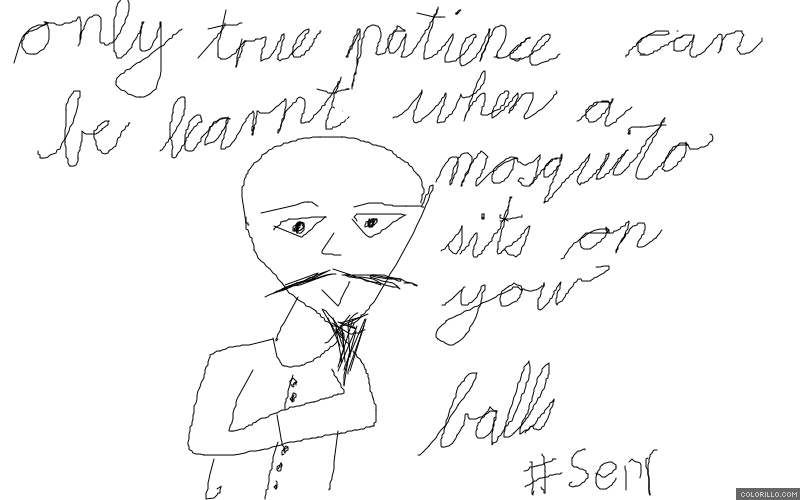 only true patience can
be learnt when a
mosquito
sits on
your
balls
COLORILLO.COM